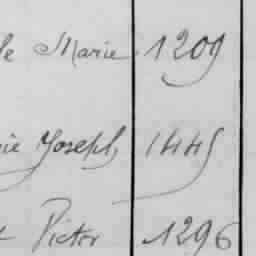 le Marie 1209
ie Joseph 1445
Victor 1296